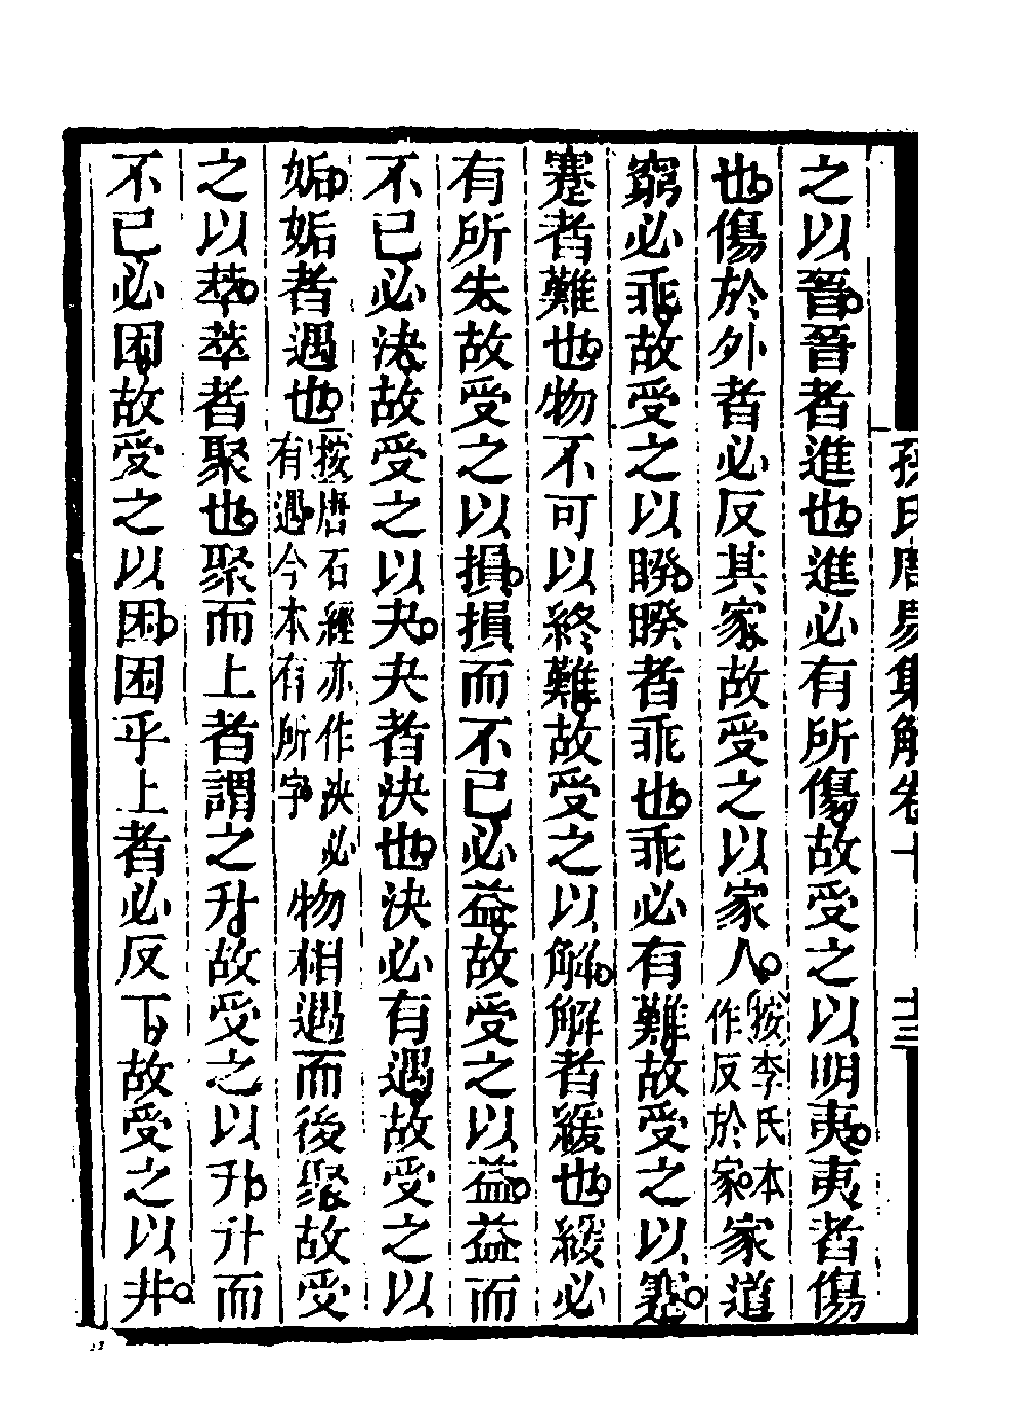 孫氏周易集解卷十 十三
之以晉晉者進也進必有所傷故受之以明夷夷者傷
也傷於外者必反其家故受之以家人按李氏本作反於家家道
窮必乖故受之以睽睽者乖也乖必有難故受之以蹇
蹇者難也物不可以終難故受之以解解者緩也緩必
有所失故受之以損損而不已必益故受之以益益而
不已必決故受之以夬夬者決也決必有遇故受之以
姤姤者遇也按唐石經亦作決必有遇今本有所字物相遇而後聚故受
之以萃萃者聚也聚而上者謂之升故受之以升升而
不已必困故受之以困困乎上者必反下故受之以井